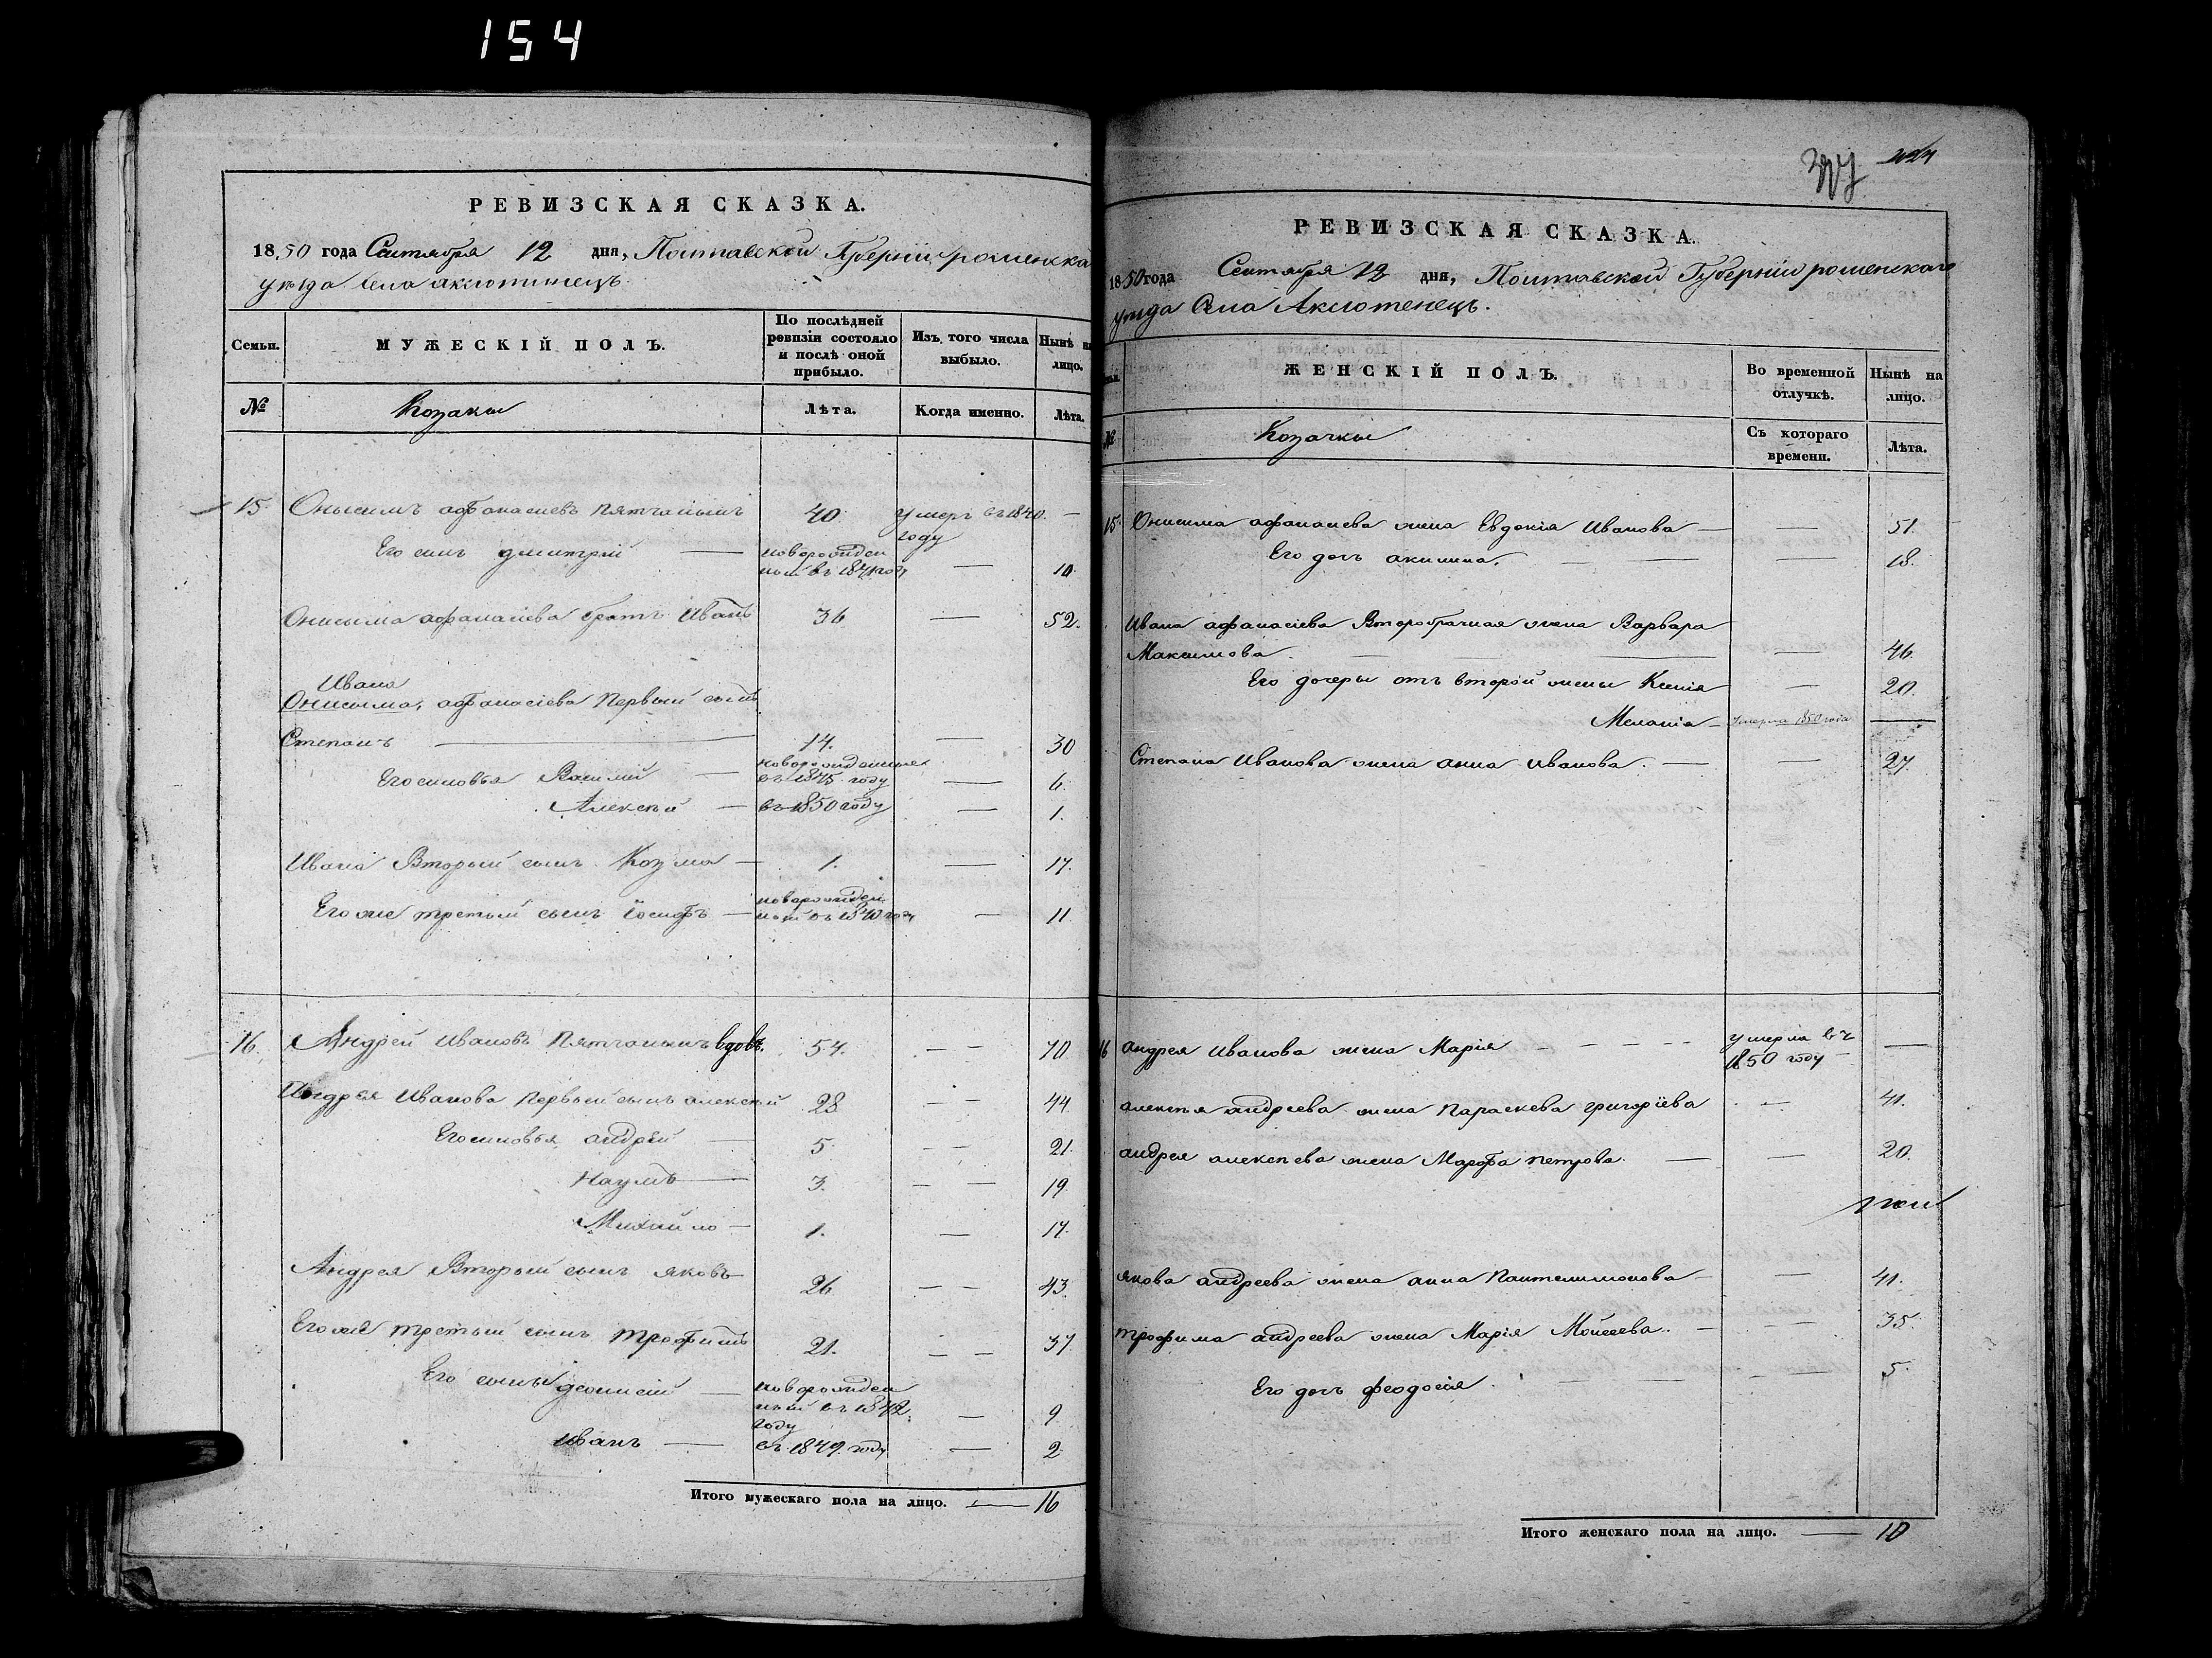 154
РЕВИЗСКАЯ СКАЗКА.
1850 года Сентября 12 дня, Полтавской Губерніи роменска
уезда села аксютинецъ
Семьи. МУЖЕСКІЙ ПОЛЪ. По послѣдней ревизіи состояло и послѣ оной прибыло. Изъ того числа выбыло. Нынѣ на лицо.
№ Козаки Лѣта. Когда именно. Лѣта.
15 Онысимъ афанасиевъ Пятчанинъ 40 умеръ въ 1840 году —
Его сынъ дмитрій — новорожден ный въ 1841 году — 10.
Онисима афанасіева братъ Иванъ 36 — 52.
Ивана
Онисима, афанасіева Первый сынъ
Степанъ — 14. — 30
Его сыновья Василий — новорожденныя въ 1845 году — 6.
Алексей — въ 1850 году — 1.
Ивана Вторый сынъ Козма — 1. — 17.
Его же третый сынъ Іосифъ — новорожден ный въ 1840 году — 11.
16. Андрей Ивановъ Пятчанинъ вдовъ. 54. — — 70
Андрея Иванова Первый сынъ алексей 28 — — 44
Его сыновья андрей — 5. — — 21.
Наумъ — 3. — — 19.
Михайло — 1. — 17.
Андрея Вторый сынъ яковъ 26 — — 43.
Его же третый сынъ трофимъ 21. — — 37
Его сыны деонисій — новорожден ный въ 1842 году — 9
иванъ — въ 1849 году — 2
Итого мужескаго пола на лицо. — 16
РЕВИЗСКАЯ СКАЗКА.
1850 года Сентября 12 дня, Полтавской Губерніи роменскаго
уезда Села Аксютенецъ.
ЖЕНСКІЙ ПОЛЪ. Во временной отлучкѣ. Нынѣ на лицо.
№ Козачки Съ котораго времени. Лѣта.
15. Онисима афанасиева жена Евдокія Иванова — — 51.
Его дочь акилина. — — — 18.
Ивана афанасіева Второбрачная жена Варвара
Максимова. — — 46.
Его дочеры отъ второй жены Ксенія — 20.
Меланія — умерла 1850 года —
Степана Иванова жена анна иванова. — — 27.
16 андрея иванова жена Марія — — — умерла въ 1850 году —
алексея андреева жена Параскева григоріева — 41.
андрея алексеева жена Марфа петрова. — — 20.
якова андреева жена анна Пантелимонова — — 41.
трофима андреева жена Марія Мойсеева. — — — 35.
Его дочь феодосія. — — — — 5
Итого женскаго пола на лицо. — 10